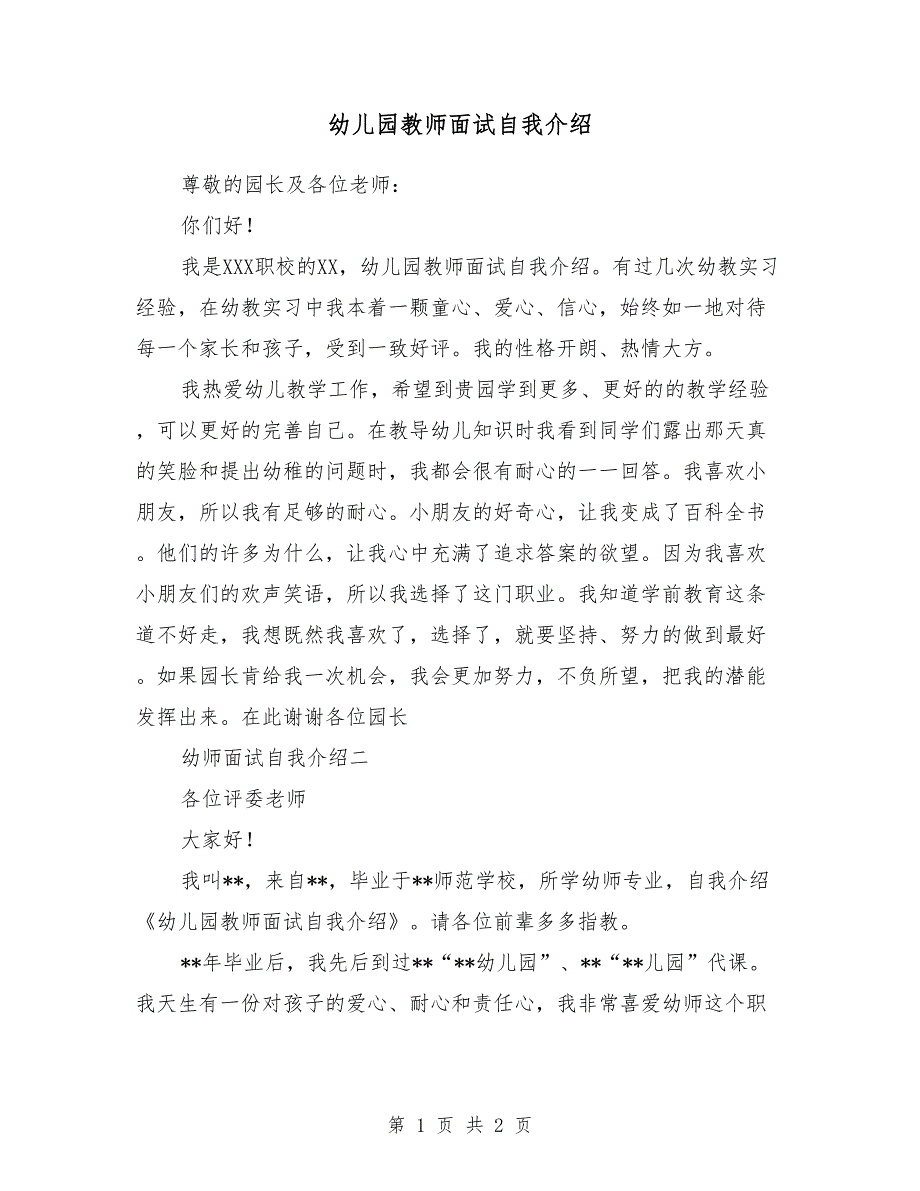 幼儿园教师面试自我介绍
尊敬的园长及各位老师：
你们好！
我是XXX职校的XX，幼儿园教师面试自我介绍。有过几次幼教实习
经验，在幼教实习中我本着一颗童心、爱心、信心，始终如一地对待
每一个家长和孩子，受到一致好评。我的性格开朗、热情大方。
我热爱幼儿教学工作，希望到贵园学到更多、更好的的教学经验
，可以更好的完善自己。在教导幼儿知识时我看到同学们露出那天真
的笑脸和提出幼稚的问题时，我都会很有耐心的一一回答。我喜欢小
朋友，所以我有足够的耐心。小朋友的好奇心，让我变成了百科全书
。他们的许多为什么，让我心中充满了追求答案的欲望。因为我喜欢
小朋友们的欢声笑语，所以我选择了这门职业。我知道学前教育这条
道不好走，我想既然我喜欢了，选择了，就要坚持、努力的做到最好
。如果园长肯给我一次机会，我会更加努力，不负所望，把我的潜能
发挥出来。在此谢谢各位园长
幼师面试自我介绍二
各位评委老师
大家好！
我叫**，来自**，毕业于**师范学校，所学幼师专业，自我介绍
《幼儿园教师面试自我介绍》。请各位前辈多多指教。
**年毕业后，我先后到过**“**幼儿园”、**“**儿园”代课。
我天生有一份对孩子的爱心、耐心和责任心，我非常喜爱幼师这个职
第 1 页 共 2 页